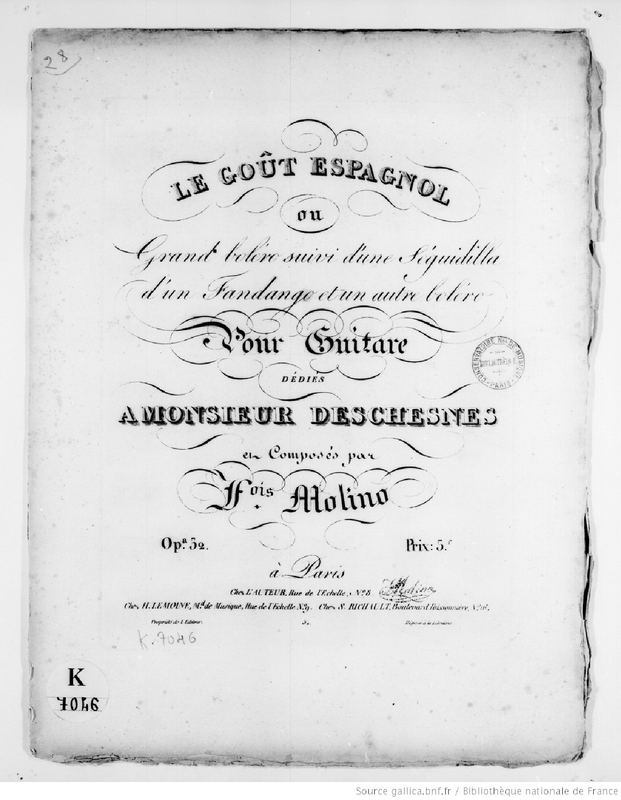 28
LE GOÛT ESPAGNOL
ou
Grand boléro suivi d'une Séguidilla
d'un Fandango et un autre boléro
Pour Guitare
DÉDIÉS
A MONSIEUR DESCHESNES
et Composés par
F.ois Molino
Op.a 52. Prix: 5.f
à Paris
Chez L'AUTEUR, Rue de l'Echelle, N.o 8 Molino
Chez H. LEMOINE, M.d de Musique, Rue de l'Echelle N.o 9. Chez S. RICHAULT, Boulevard Poissonnière, N.o 16.
Propriété de l'Editeur.
K.7046
K
7046
Source gallica.bnf.fr / Bibliothèque nationale de France